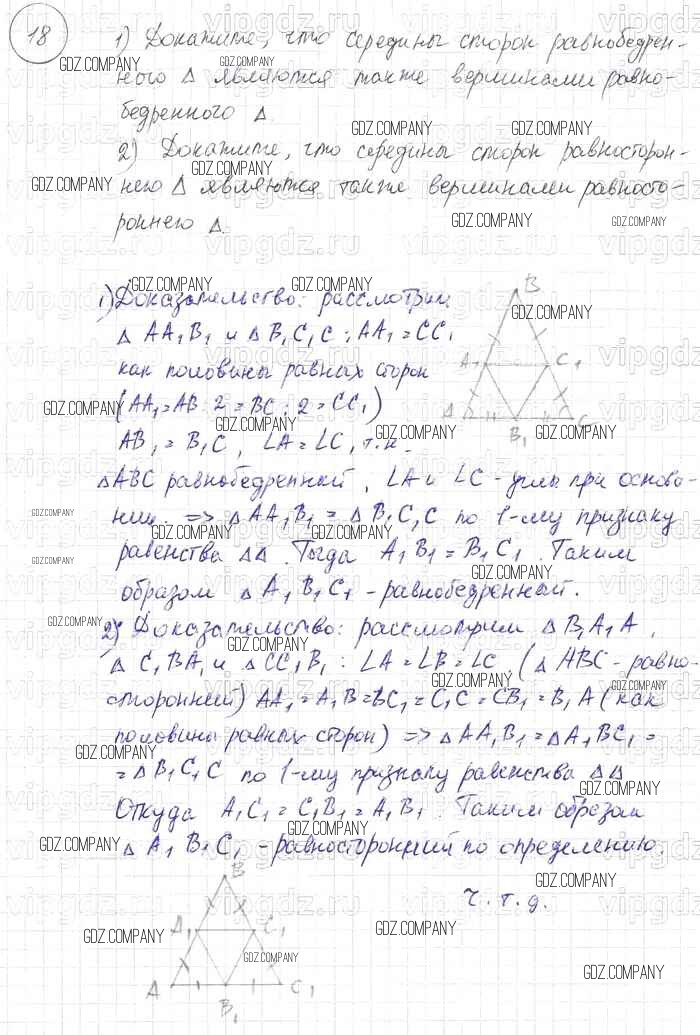 18
1) Докажите, что середины сторон равнобедрен-
ного Δ являются также вершинами равно-
бедренного Δ.
2) Докажите, что середины сторон равносторон-
него Δ являются также вершинами равносто-
роннего Δ.
1) Доказательство: рассмотрим
Δ AA₁B₁ и Δ B₁C₁C : AA₁ = CC₁
как половины равных сторон
(AA₁ = AB : 2 = BC : 2 = CC₁)
AB₁ = B₁C, ∠A = ∠C, т.к.
ΔABC равнобедренный, ∠A и ∠C - углы при основа-
нии. => Δ AA₁B₁ = Δ B₁C₁C по 1-му признаку
равенства ΔΔ. Тогда A₁B₁ = B₁C₁. Таким
образом Δ A₁B₁C₁ - равнобедренный.
B
A₁ C₁
A B₁ C
2) Доказательство: рассмотрим Δ B₁A₁A,
Δ C₁BA₁ и Δ CC₁B₁ : ∠A = ∠B = ∠C (Δ ABC - равно-
сторонний) AA₁ = A₁B = BC₁ = C₁C = CB₁ = B₁A (как
половина равных сторон) => Δ AA₁B₁ = Δ A₁BC₁ =
= Δ B₁C₁C по 1-му признаку равенства ΔΔ
Откуда A₁C₁ = C₁B₁ = A₁B₁. Таким образом
Δ A₁B₁C₁ - равносторонний по определению.
ч.т.д.
B
A₁ C₁
A B₁ C₁
GDZ.COMPANY
vipgdz.ru